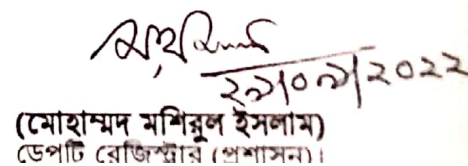 ২৯/০৯/২০২২
(মোহাম্মদ মশিরুল ইসলাম)
ডেপুটি রেজিস্ট্রার (প্রশাসন)।